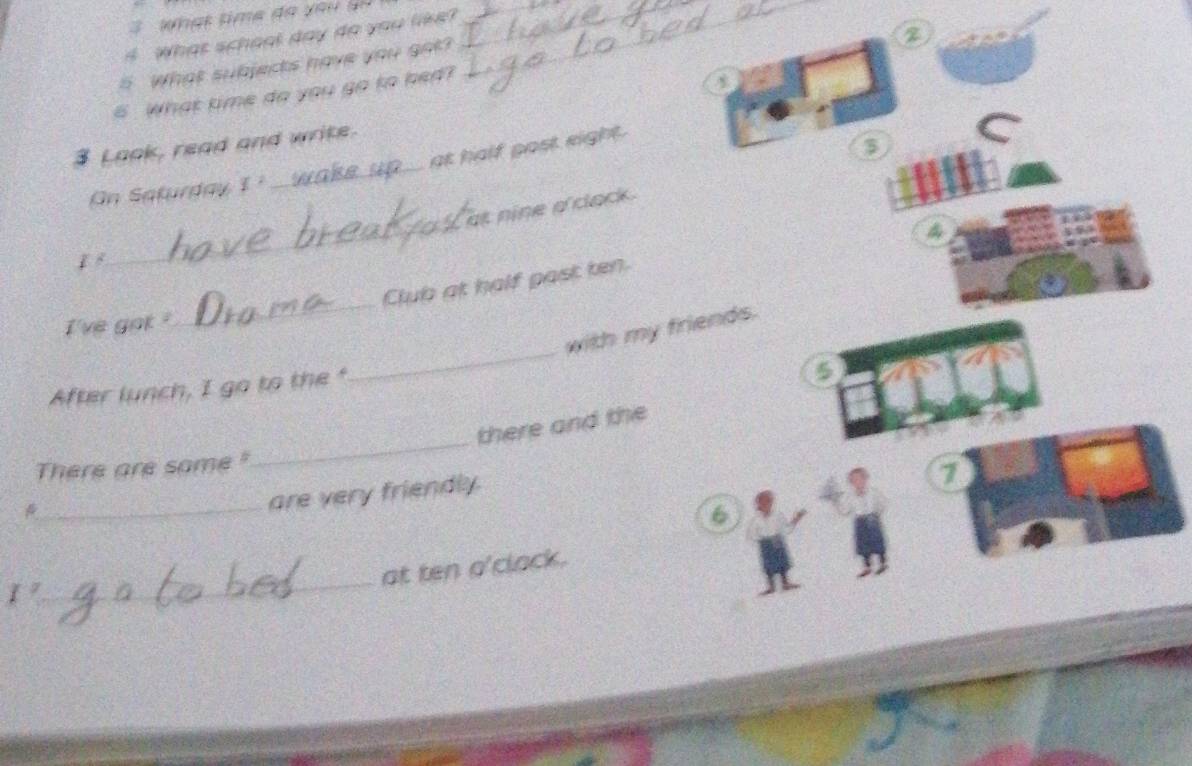 3 What time do you
4 What school day do you like? I
5 What subjects have you got? I have
6 What time do you go to bed? I go to bed at
3 Look, read and write.
On Saturday, I 1 wake up at half past eight.
I 2 have breakfast at nine o'clock.
I've got 3 Drama Club at half past ten.
After lunch, I go to the 4 with my friends.
There are some 5 there and the
6 are very friendly.
I 7 go to bed at ten o'clock.
1
2
3
4
5
6
7